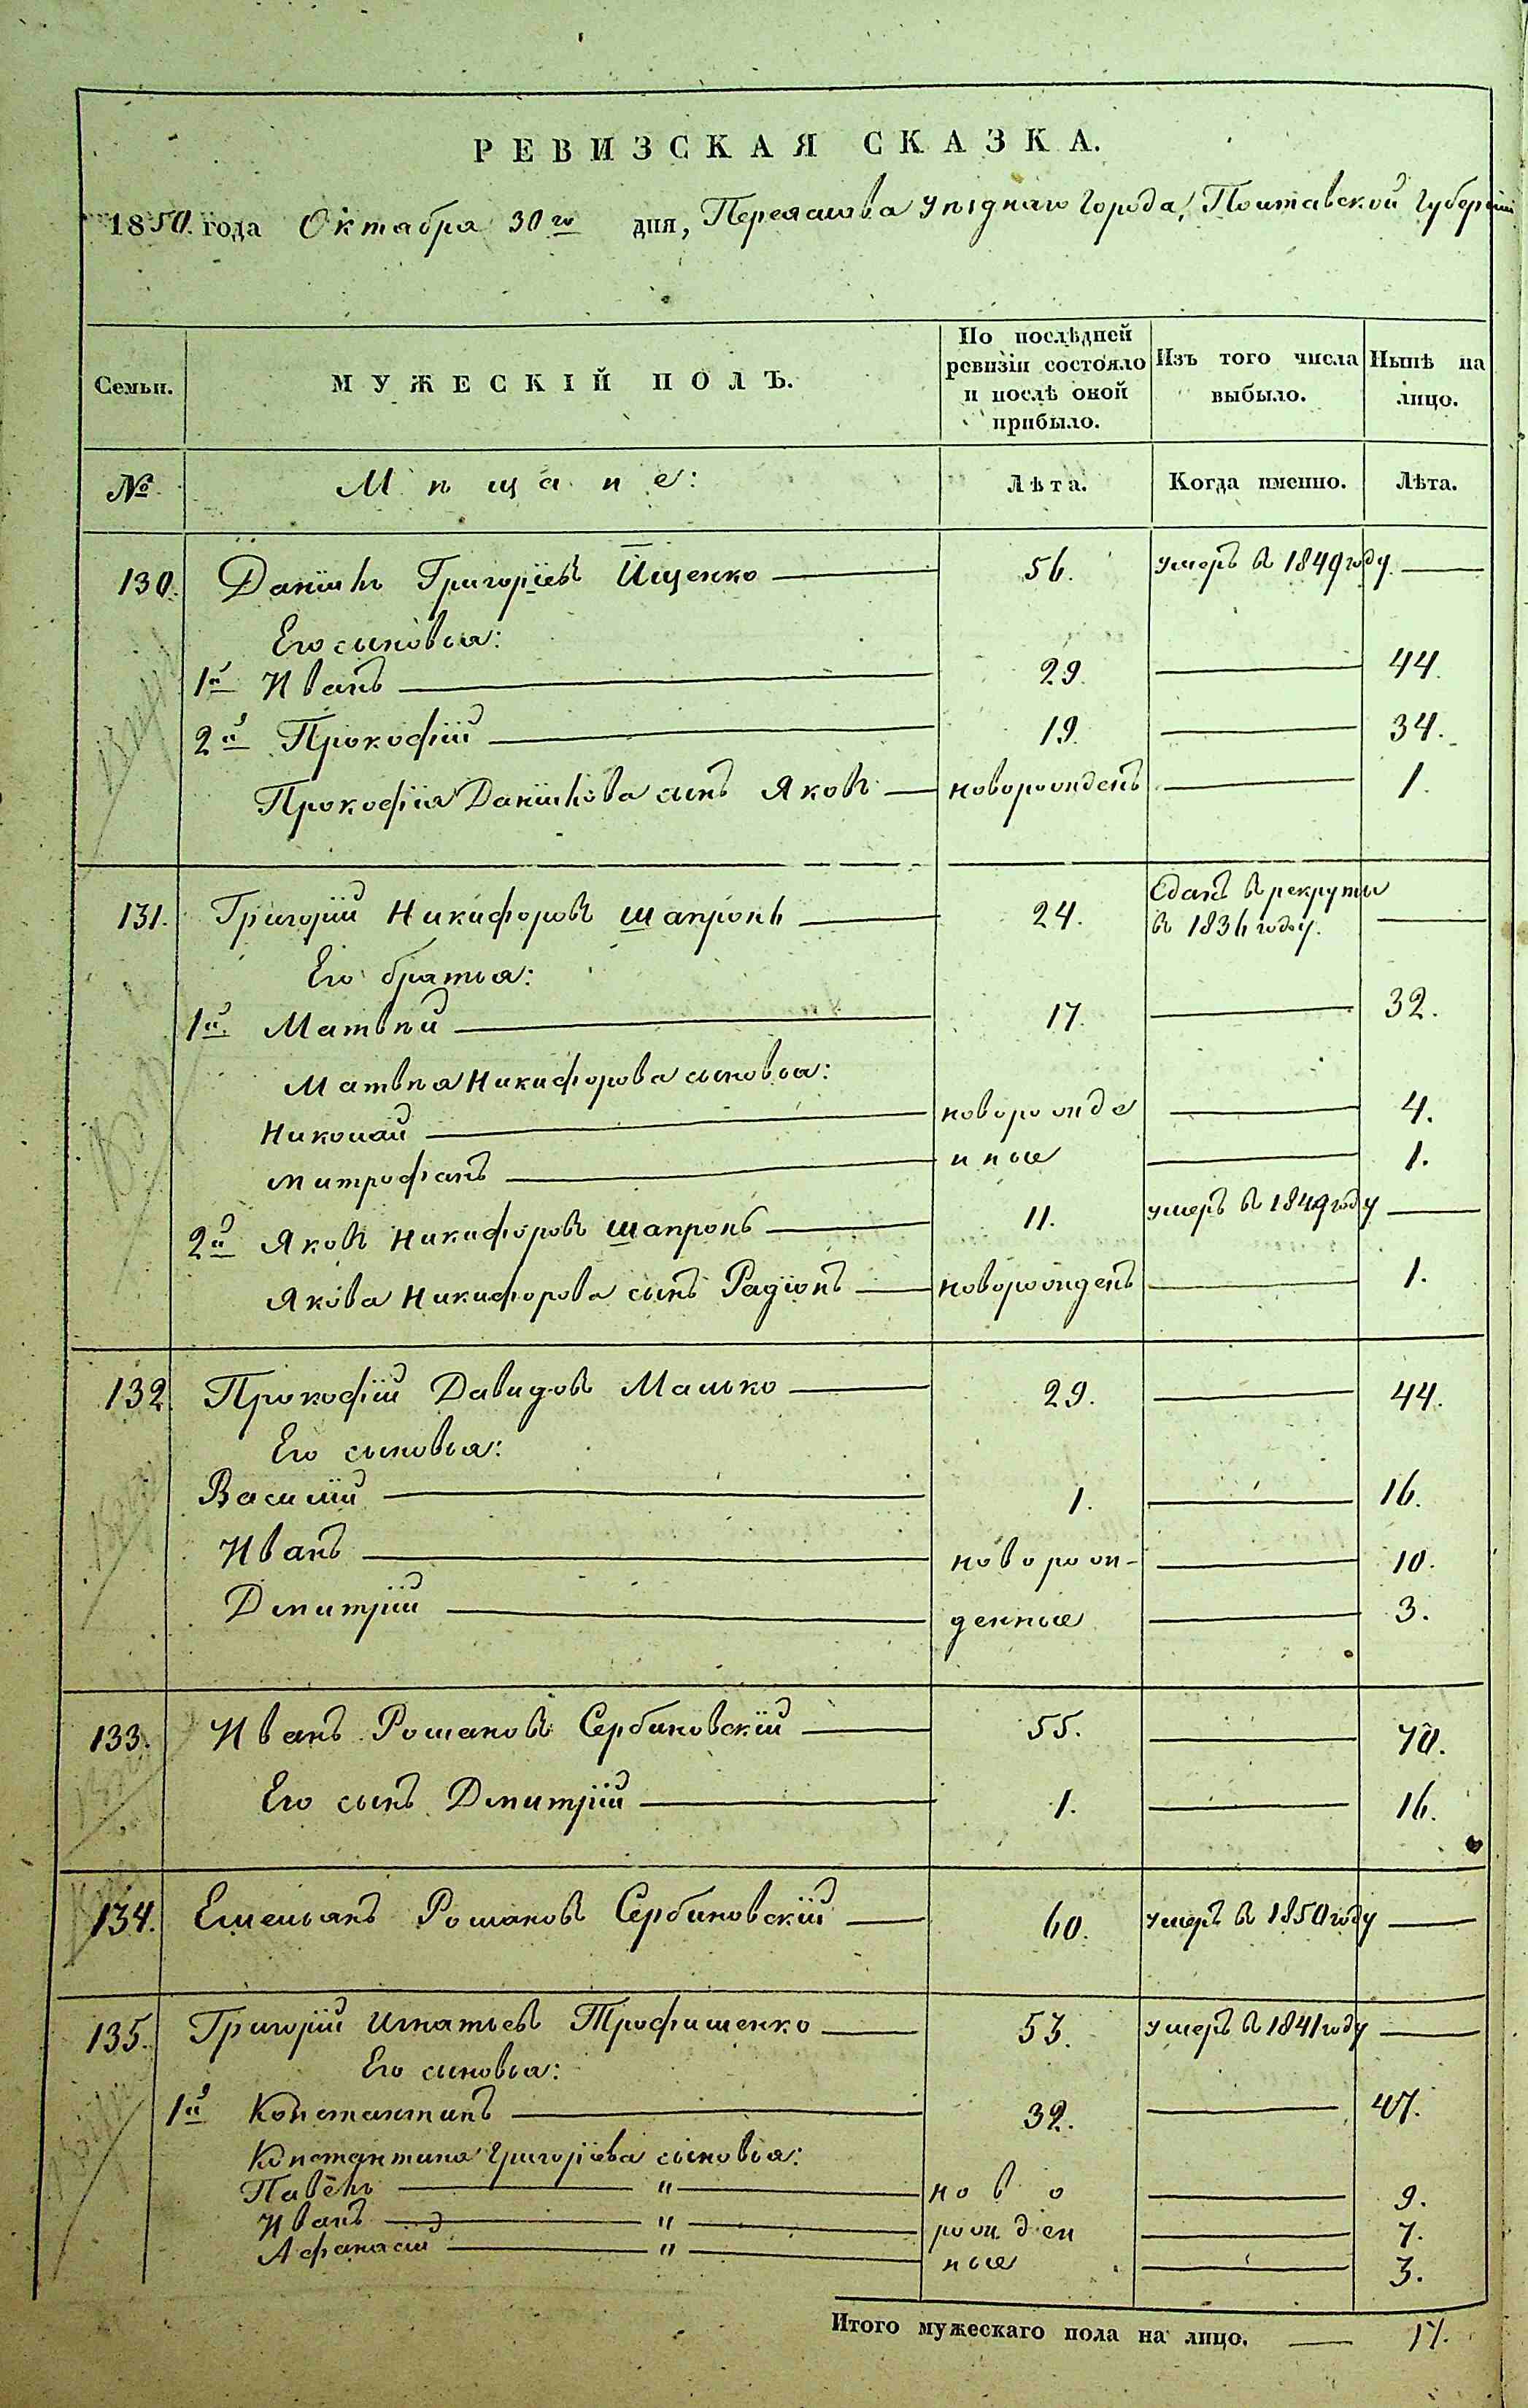 РЕВИЗСКАЯ СКАЗКА.
1850 года Октября 30го дня, Переяслова Уѣзднаго Города, Полтавской Губерніи
Семьи. МУЖЕСКІЙ ПОЛЪ. По послѣдней ревизіи состояло и послѣ оной прибыло. Изъ того числа выбыло. Нынѣ на лицо.
№ Мѣщане: Лѣта. Когда именно. Лѣта.
130. Даніилъ Григоріевъ Ищенко — 56. умеръ въ 1849 году. —
Его сыновья:
1й Иванъ — 29. — 44.
2й Прокофій — 19. — 34.
Прокофія Даніилова сынъ Яковъ — новорожденъ — 1.
131. Григорій Никифоровъ Шапронъ — 24. Сданъ въ рекруты въ 1836 году. —
Его братья:
1й Матвѣй — 17. — 32.
Матвѣя Никифорова сыновья:
Николай — новорожде — 4.
Митрофанъ — нные — 1.
2й Яковъ Никифоровъ Шапронъ — 11. умеръ въ 1849 году —
Якова Никифорова сынъ Радіонъ — новорожденъ — 1.
132. Прокофій Давидовъ Малько — 29. — 44.
Его сыновья:
Василій — 1. — 16.
Иванъ — новорож- — 10.
Дмитрій — денные — 3.
133. Иванъ Романовъ Сербиновскій — 55. — 70.
Его сынъ Дмитрій — 1. — 16.
134. Емельянъ Романовъ Сербиновскій — 60. умеръ въ 1850 году —
135. Григорій Игнатьевъ Трофименко — 53. умеръ въ 1841 году —
Его сыновья:
1й Константинъ — 32. — 47.
Константина Григоріева сыновья:
Павелъ — " — ново — 9.
Иванъ — " — рожден — 7.
Афанасій — " — ные — 3.
Итого мужескаго пола на лицо. — 17.